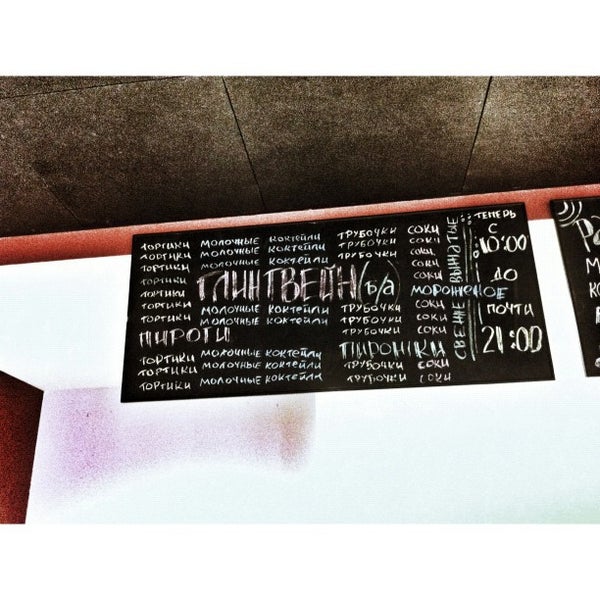 ТОРТИКИ МОЛОЧНЫЕ КОКТЕЙЛИ ТРУБОЧКИ СОКИ
ТОРТИКИ МОЛОЧНЫЕ КОКТЕЙЛИ ТРУБОЧКИ СОКИ
ТОРТИКИ МОЛОЧНЫЕ КОКТЕЙЛИ ТРУБОЧКИ СОКИ
ТОРТИКИ ГЛИНТВЕЙН (б/а) СОКИ
ТОРТИКИ МОРОЖЕНОЕ
ТОРТИКИ МОЛОЧНЫЕ КОКТЕЙЛИ ТРУБОЧКИ СОКИ
ТОРТИКИ МОЛОЧНЫЕ КОКТЕЙЛИ ТРУБОЧКИ СОКИ
ПИРОГИ МОЛОЧНЫЕ КОКТЕЙЛИ ТРУБОЧКИ СОКИ
ТОРТИКИ МОЛОЧНЫЕ КОКТЕЙЛИ ПИРОЖКИ СОКИ
ТОРТИКИ МОЛОЧНЫЕ КОКТЕЙЛИ ТРУБОЧКИ СОКИ
ТОРТИКИ МОЛОЧНЫЕ КОКТЕЙЛИ ТРУБОЧКИ СОКИ
СВЕЖЕ ВЫЖАТЫЕ
ТЕПЕРЬ
С
10:00
ДО
ПОЧТИ
21:00